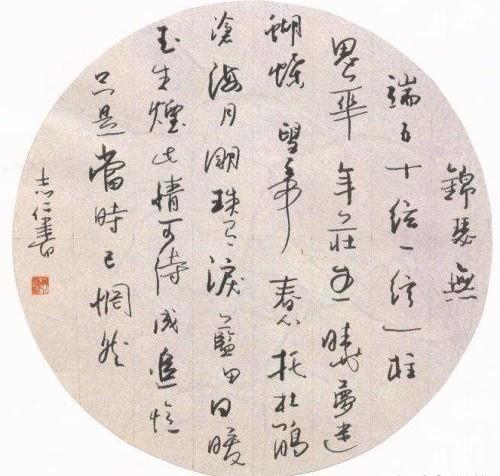 錦瑟無
端五十絃一絃一柱
思華年莊生曉夢迷
蝴蝶望帝春心托杜鵑
滄海月明珠有淚藍田日暖
玉生煙此情可待成追憶
只是當時已惘然
志仁書